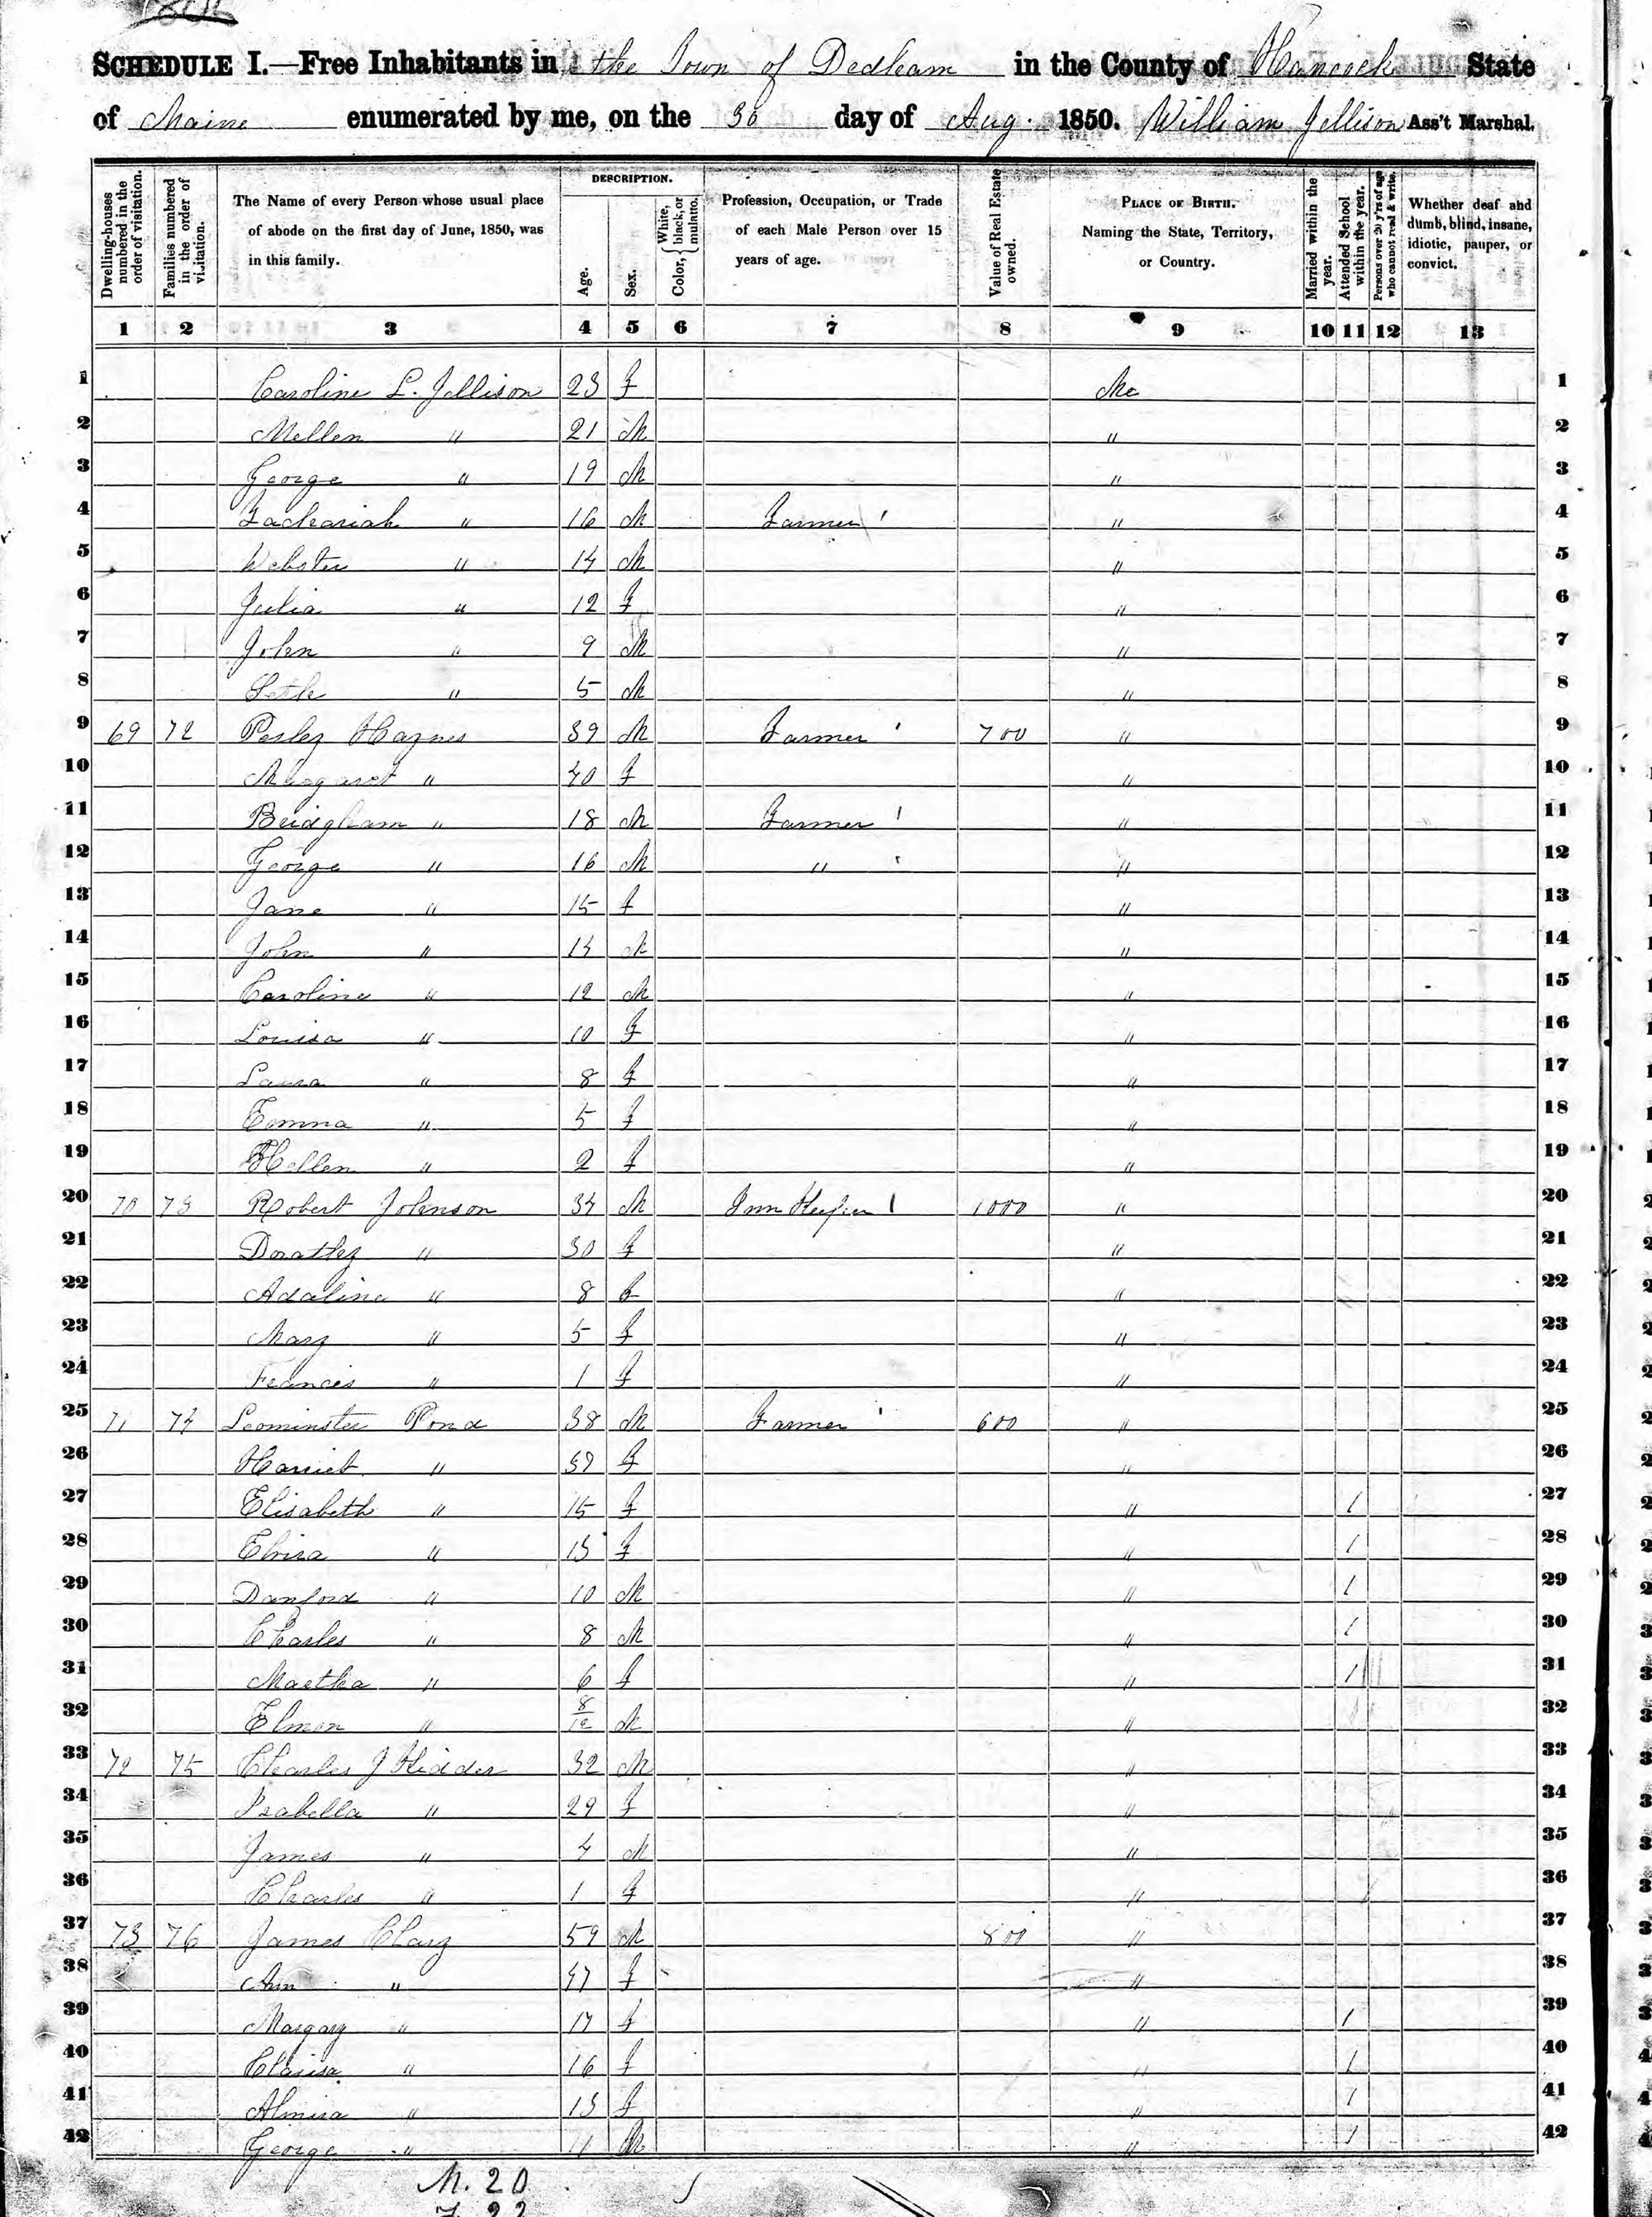 SCHEDULE I.—Free Inhabitants in the Town of Dedham in the County of Hancock State
of Maine enumerated by me, on the 30 day of Aug. 1850. William Jellison Ass't Marshal.
Dwelling-houses numbered in the order of visitation.
Families numbered in the order of visitation.
The Name of every Person whose usual place of abode on the first day of June, 1850, was in this family.
DESCRIPTION.
Age.
Sex.
Color, { White, black, or mulatto.
Profession, Occupation, or Trade of each Male Person over 15 years of age.
Value of Real Estate owned.
PLACE OF BIRTH. Naming the State, Territory, or Country.
Married within the year.
Attended School within the year.
Persons over 20 y'rs of age who cannot read & write.
Whether deaf and dumb, blind, insane, idiotic, pauper, or convict.
1 2 3 4 5 6 7 8 9 10 11 12 13
1 Caroline L. Jellison 23 f Me 1
2 Mellen " 21 M " 2
3 George " 19 M " 3
4 Zachariah " 16 M Farmer " 4
5 Webster " 14 M " 5
6 Julia " 12 f " 6
7 John " 9 M " 7
8 Seth " 5 M " 8
9 69 72 Pesley Haynes 39 M Farmer 700 " 9
10 Margaret " 40 f " 10
11 Bridgham " 18 M Farmer " 11
12 George " 16 M " " 12
13 Jane " 15 f " 13
14 John " 14 M " 14
15 Caroline " 12 M " 15
16 Louisa " 10 f " 16
17 Laura " 8 f " 17
18 Emma " 5 f " 18
19 Hellen " 2 f " 19
20 70 73 Robert Johnson 34 M Inn Keeper 1000 " 20
21 Dorathy " 30 f " 21
22 Adaline " 8 f " 22
23 Mary " 5 f " 23
24 Frances " 1 f " 24
25 71 74 Leominster Pond 38 M Farmer 600 " 25
26 Harriet " 39 f " 26
27 Elisabeth " 15 f " 1 27
28 Elvira " 13 f " 1 28
29 Danford " 10 M " 1 29
30 Charles " 8 M " 1 30
31 Martha " 6 f " 1 31
32 Elmon " 8/12 M " 32
33 72 75 Charles J Kidder 32 M " 33
34 Isabella " 29 f " 34
35 James " 4 M " 35
36 Charles " 1 f " 36
37 73 76 James Clary 59 M 800 " 37
38 Ann " 47 f " 38
39 Margary " 17 f " 1 39
40 Clarisa " 16 f " 1 40
41 Almira " 13 f " 1 41
42 George " 11 M " 1 42
M. 20
F 22